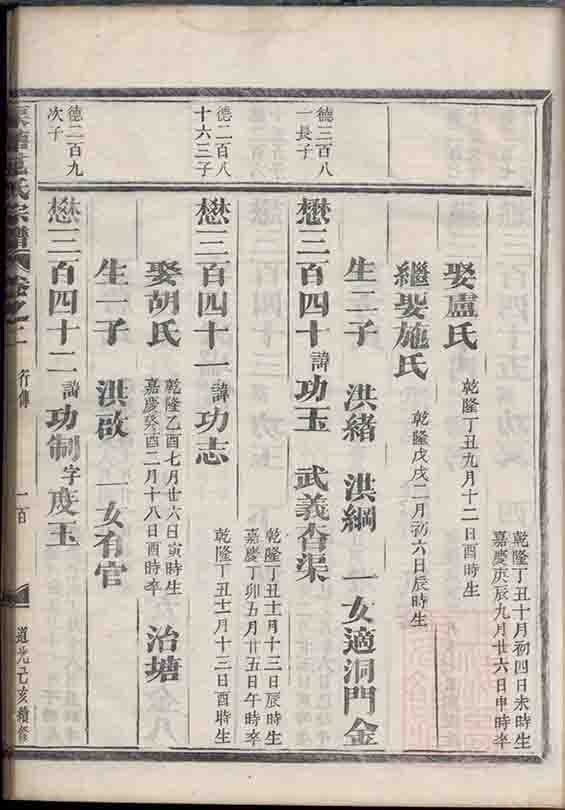 乾隆丁丑十月初四日未時生
嘉慶庚辰九月廿六日申時卒
娶盧氏
乾隆丁丑九月十二日酉時生
繼娶施氏
乾隆戊戌二月初六日辰時生
生二子 洪緒 洪綱 一女適洞門金
德三百八
一長子
懋三百四十 諱 功玉 武義杏渠
乾隆丁丑十一月十三日辰時生
嘉慶丁卯五月廿五日午時卒
德二百八
十六三子
懋三百四十一 諱 功志
乾隆丁丑十一月十三日酉時生
娶胡氏
乾隆乙酉七月廿六日寅時生
嘉慶癸酉二月十八日酉時卒
治塘
生一子 洪啟 一女有官
德二百九
次子
懋三百四十二 諱 功制 字 度玉
氏宗譜 卷之二 行傳 一百 道光己亥續修